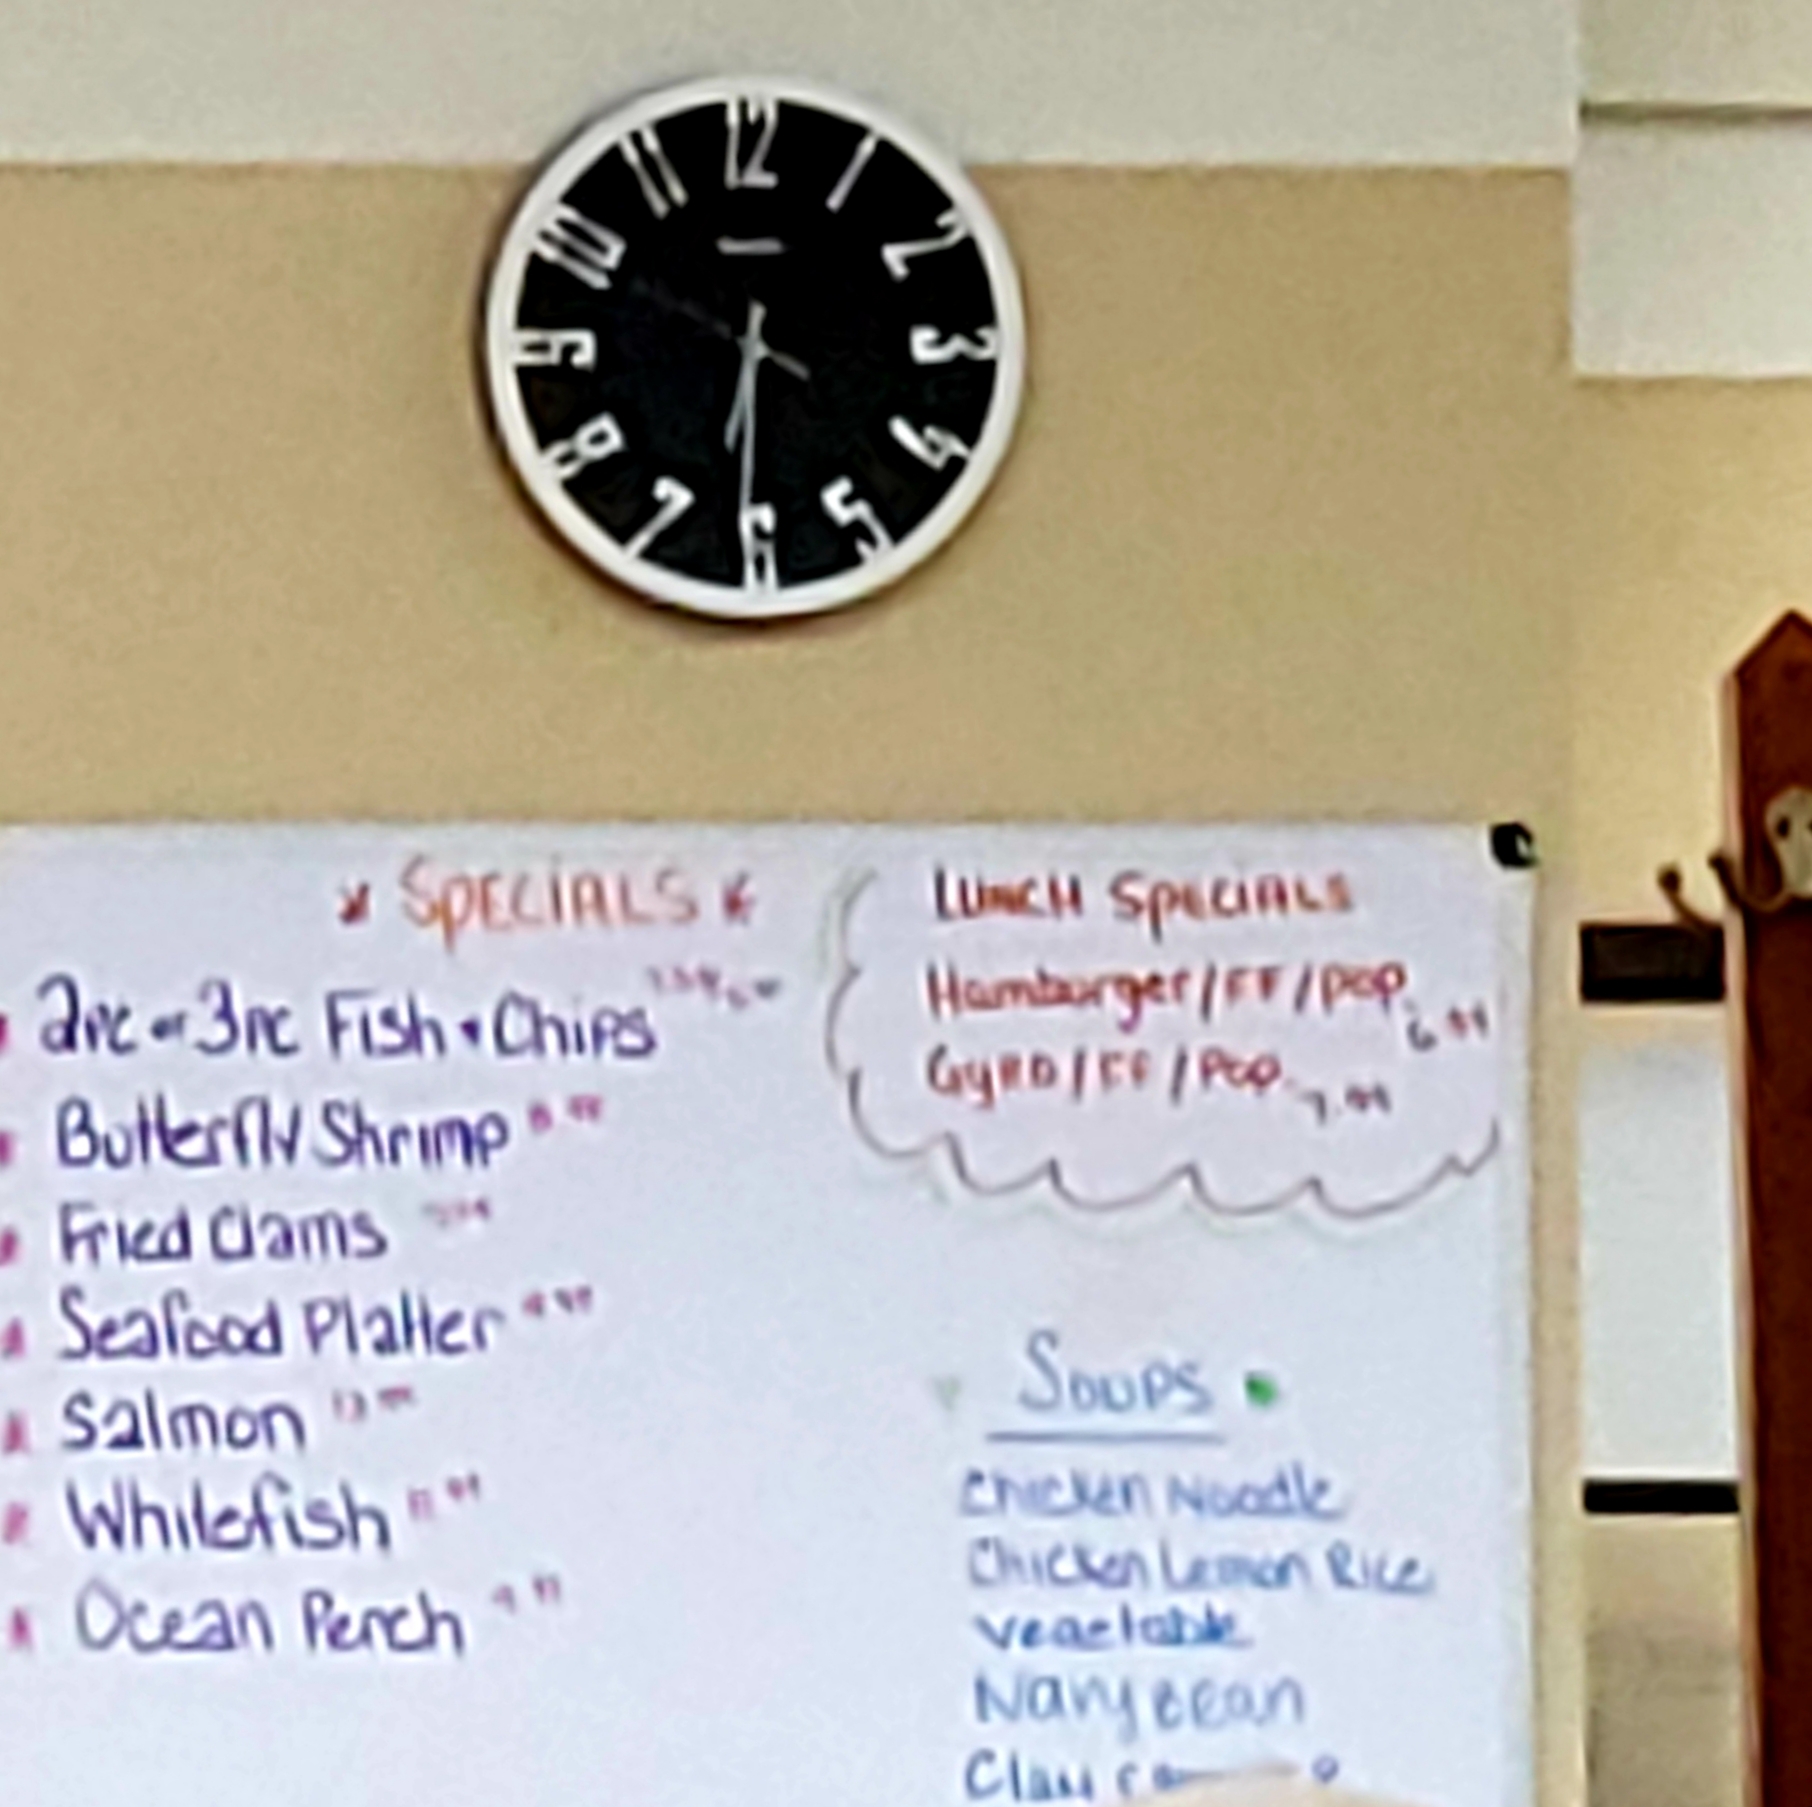 12
1
2
3
4
5
6
7
8
9
10
11
SPECIALS
2pc or 3pc Fish & Chips
Butterfly Shrimp
Fried Clams
Seafood Platter
Salmon
Whitefish
Ocean Perch
LUNCH SPECIALS
Hamburger/FF/POP
6.99
Gyro/FF/POP
7.99
Soups
Chicken Noodle
Chicken Lemon Rice
vegetable
Navy Bean
Clam